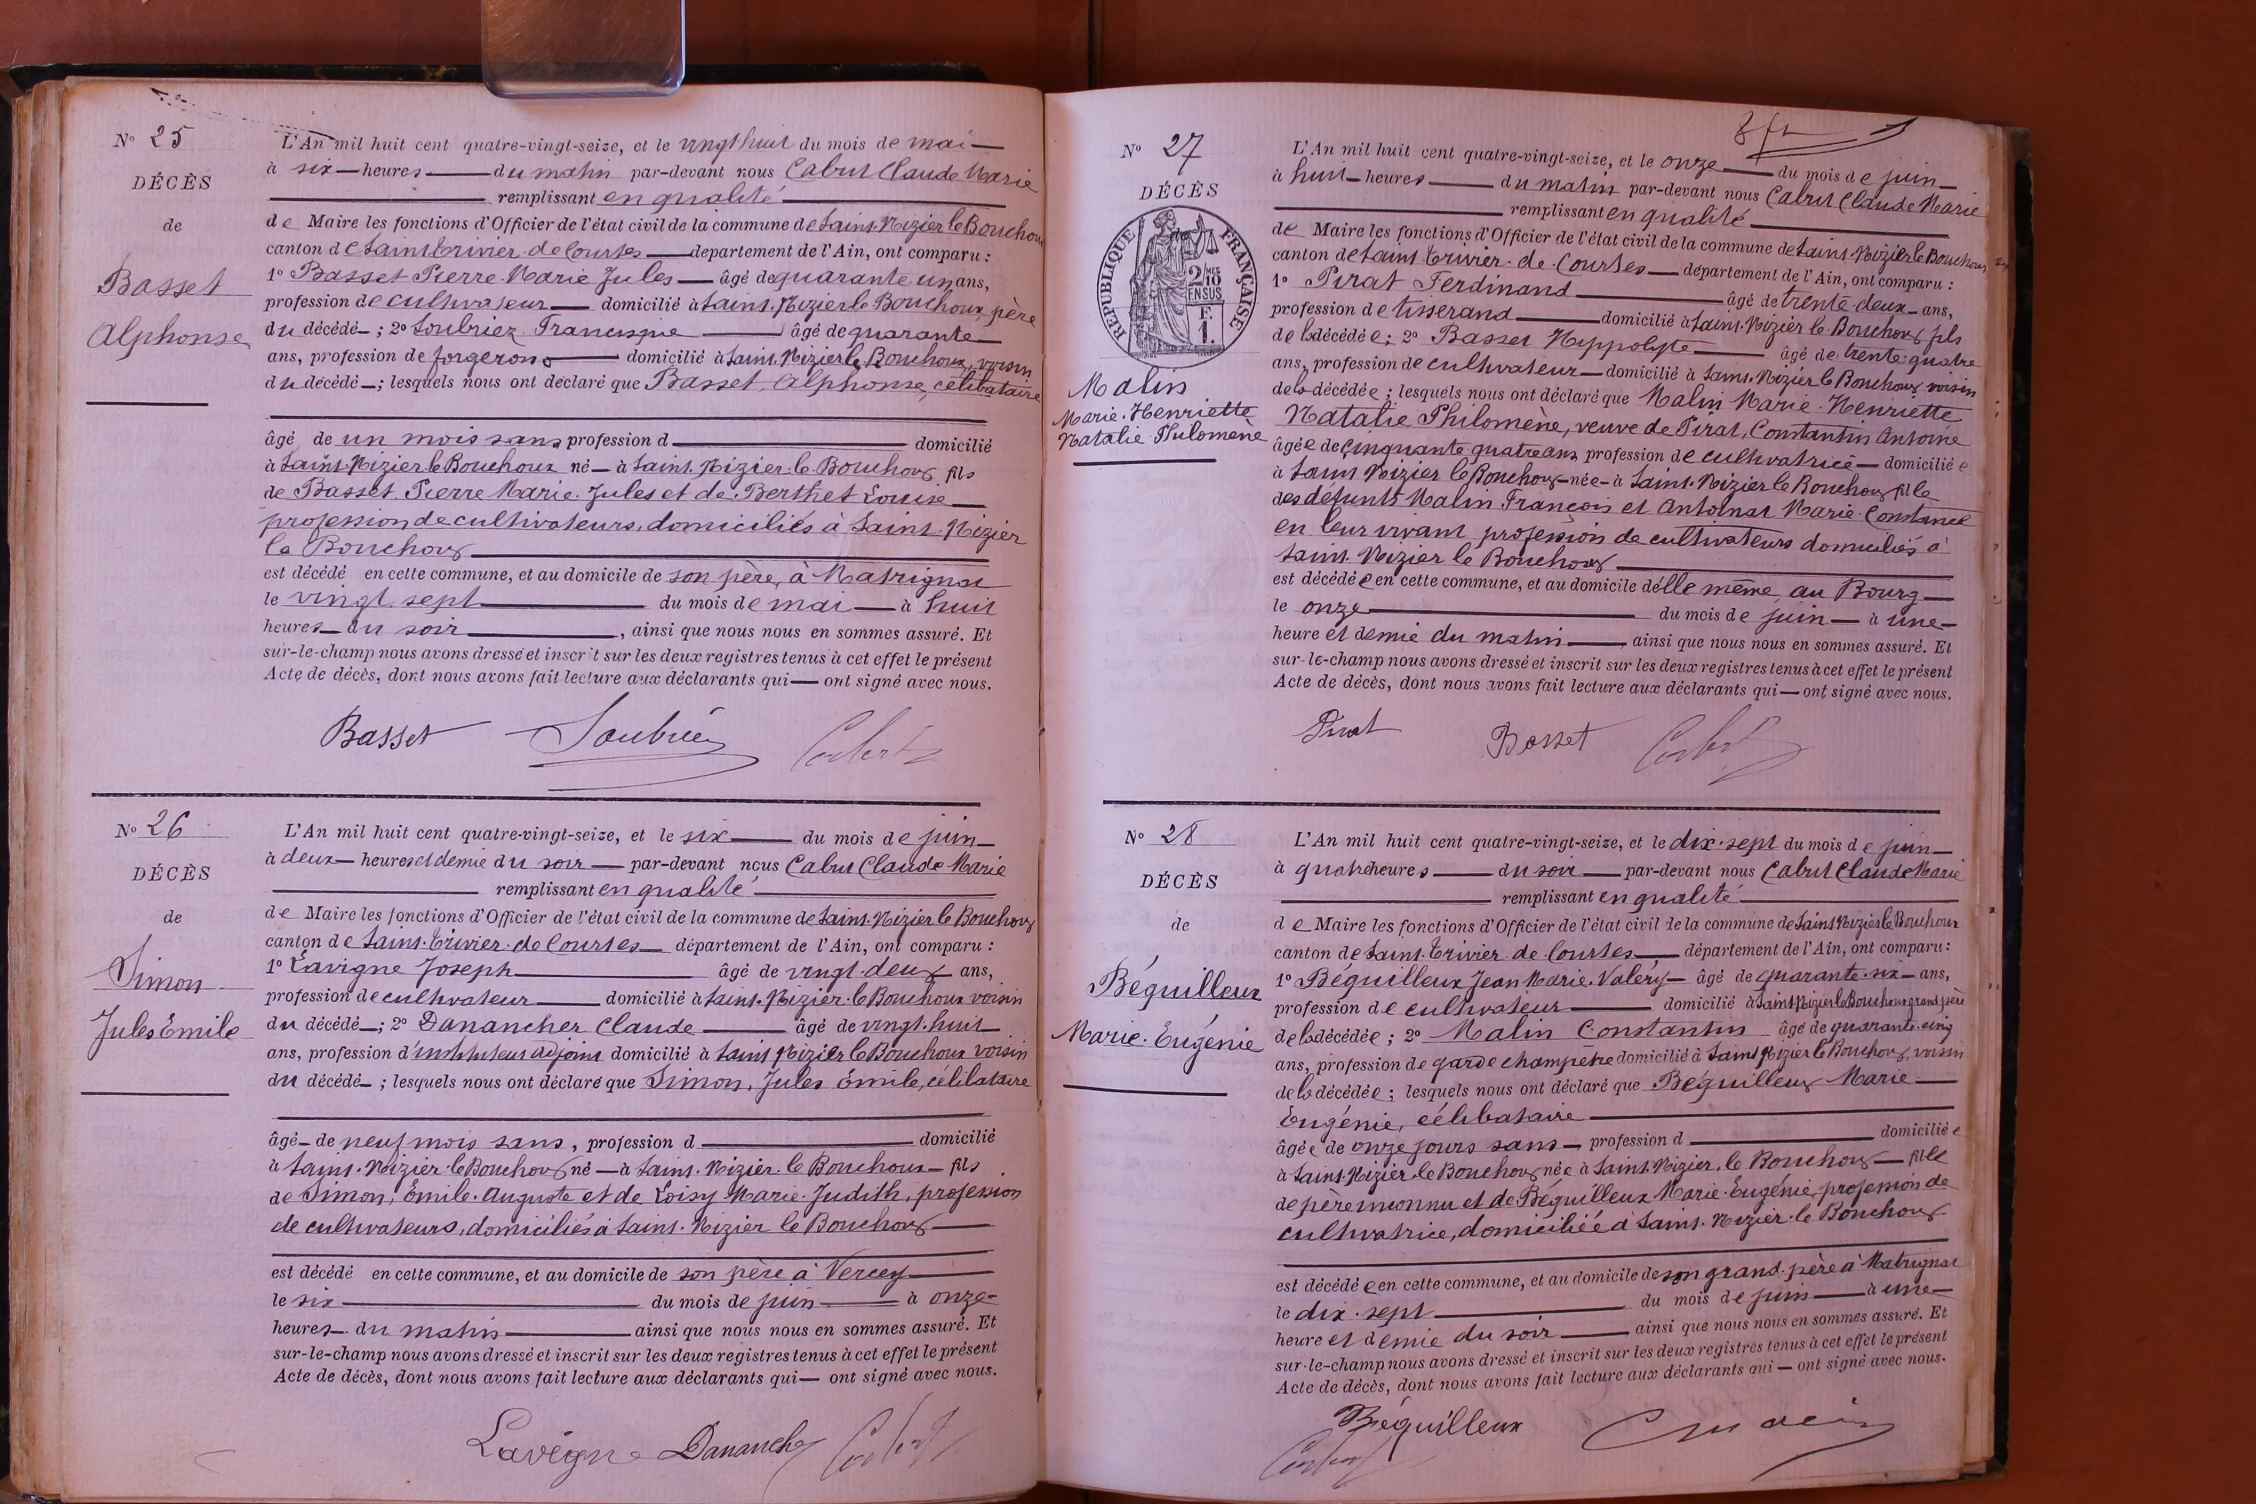 N° 25
DÉCÈS
de
Basset
Alphonse
L'An mil huit cent quatre-vingt-seize, et le vingt huit du mois de mai
à six heures du matin par-devant nous Cabut Claude Marie
remplissant en qualité
de Maire les fonctions d'Officier de l'état civil de la commune de Saint-Nizier le Bouchoux
canton de Saint Trivier de Courtes département de l'Ain, ont comparu :
1° Basset Pierre Marie Jules âgé de quarante un ans,
profession de cultivateur domicilié à Saint-Nizier le Bouchoux père
du décédé ; 2° Soubriez Francisque âgé de quarante
ans, profession de forgeron domicilié à Saint-Nizier le Bouchoux, voisin
du décédé ; lesquels nous ont déclaré que Basset, Alphonse, célibataire
âgé de un mois sans profession d domicilié
à Saint-Nizier le Bouchoux né à Saint-Nizier le Bouchoux fils
de Basset Pierre Marie Jules et de Berthet Louise
profession de cultivateurs, domiciliés à Saint-Nizier
le Bouchoux
est décédé en cette commune, et au domicile de son père, à Matrignat
le vingt sept du mois de mai à huit
heures du soir, ainsi que nous nous en sommes assuré. Et
sur-le-champ nous avons dressé et inscrit sur les deux registres tenus à cet effet le présent
Acte de décès, dont nous avons fait lecture aux déclarants qui ont signé avec nous.
Basset
N° 26
DÉCÈS
de
Simon
Jules Émile
L'An mil huit cent quatre-vingt-seize, et le six du mois de juin
à deux heures et demie du soir par-devant nous Cabut Claude Marie
remplissant en qualité
de Maire les fonctions d'Officier de l'état civil de la commune de Saint-Nizier le Bouchoux
canton de Saint-Trivier de Courtes département de l'Ain, ont comparu :
1° Lavigne Joseph âgé de vingt-deux ans,
profession de cultivateur domicilié à Saint-Nizier-le Bouchoux voisin
du décédé ; 2° Danancher Claude âgé de vingt-huit
ans, profession d'instituteur adjoint domicilié à Saint Nizier le Bouchoux voisin
du décédé ; lesquels nous ont déclaré que Simon, Jules Émile, célibataire
âgé de neuf mois sans, profession d domicilié
à Saint-Nizier-le Bouchoux né à Saint-Nizier-le Bouchoux fils
de Simon, Émile Auguste et de Loisy Marie Judith, profession
de cultivateurs, domiciliés à Saint-Nizier le Bouchoux
est décédé en cette commune, et au domicile de son père à Vercey
le six du mois de juin à onze
heures du matin ainsi que nous nous en sommes assuré. Et
sur-le-champ nous avons dressé et inscrit sur les deux registres tenus à cet effet le présent
Acte de décès, dont nous avons fait lecture aux déclarants qui ont signé avec nous.
Lavigne Danancher
N° 27
DÉCÈS
de
RÉPUBLIQUE FRANÇAISE
2/10
EN SUS
F.
1.
Malin
Marie-Henriette
Natalie Philomène
L'An mil huit cent quatre-vingt-seize, et le onze du mois de juin
à huit heures du matin par-devant nous Cabut Claude Marie
remplissant en qualité
de Maire les fonctions d'Officier de l'état civil de la commune de Saint-Nizier le Bouchoux
canton de Saint Trivier-de-Courtes département de l'Ain, ont comparu :
1° Pirat Ferdinand âgé de trente-deux ans,
profession de tisserand domicilié à Saint-Nizier le Bouchoux fils
de la décédée ; 2° Basset Hippolyte âgé de trente-quatre
ans, profession de cultivateur domicilié à Saint-Nizier le Bouchoux voisin
de la décédée ; lesquels nous ont déclaré que Malin Marie-Henriette
Natalie Philomène, veuve de Pirat, Constantin Antoine
âgée de cinquante quatre ans profession de cultivatrice domiciliée
à Saint Nizier le Bouchoux née à Saint-Nizier le Bouchoux fille
des défunts Malin François et Antoinat Marie-Constance
en leur vivant profession de cultivateurs domiciliés à
Saint-Nizier le Bouchoux
est décédée en cette commune, et au domicile d'elle même, au Bourg
le onze du mois de juin à une
heure et demie du matin ainsi que nous nous en sommes assuré. Et
sur-le-champ nous avons dressé et inscrit sur les deux registres tenus à cet effet le présent
Acte de décès, dont nous avons fait lecture aux déclarants qui ont signé avec nous.
Pirat Basset
N° 28
DÉCÈS
de
Béguilleux
Marie-Eugénie
L'An mil huit cent quatre-vingt-seize, et le dix-sept du mois de juin
à quatre heures du soir par-devant nous Cabut Claude Marie
remplissant en qualité
de Maire les fonctions d'Officier de l'état civil de la commune de Saint Nizier le Bouchoux
canton de Saint-Trivier de Courtes département de l'Ain, ont comparu :
1° Béguilleux Jean Marie Valéry âgé de quarante-six ans,
profession de cultivateur domicilié à Saint Nizier le Bouchoux grand père
de la décédée ; 2° Malin Constantin âgé de quarante-cinq
ans, profession de garde champêtre domicilié à Saint Nizier le Bouchoux, voisin
de la décédée ; lesquels nous ont déclaré que Béguilleux Marie
Eugénie, célibataire
âgée de onze jours sans profession d domiciliée
à Saint-Nizier-le Bouchoux née à Saint-Nizier-le Bouchoux fille
de père inconnu et de Béguilleux Marie-Eugénie, profession de
cultivatrice, domiciliée à Saint-Nizier-le Bouchoux
est décédée en cette commune, et au domicile de son grand-père à Matrignat
le dix-sept du mois de juin à une
heure et demie du soir ainsi que nous nous en sommes assuré. Et
sur-le-champ nous avons dressé et inscrit sur les deux registres tenus à cet effet le présent
Acte de décès, dont nous avons fait lecture aux déclarants qui ont signé avec nous.
Béguilleux